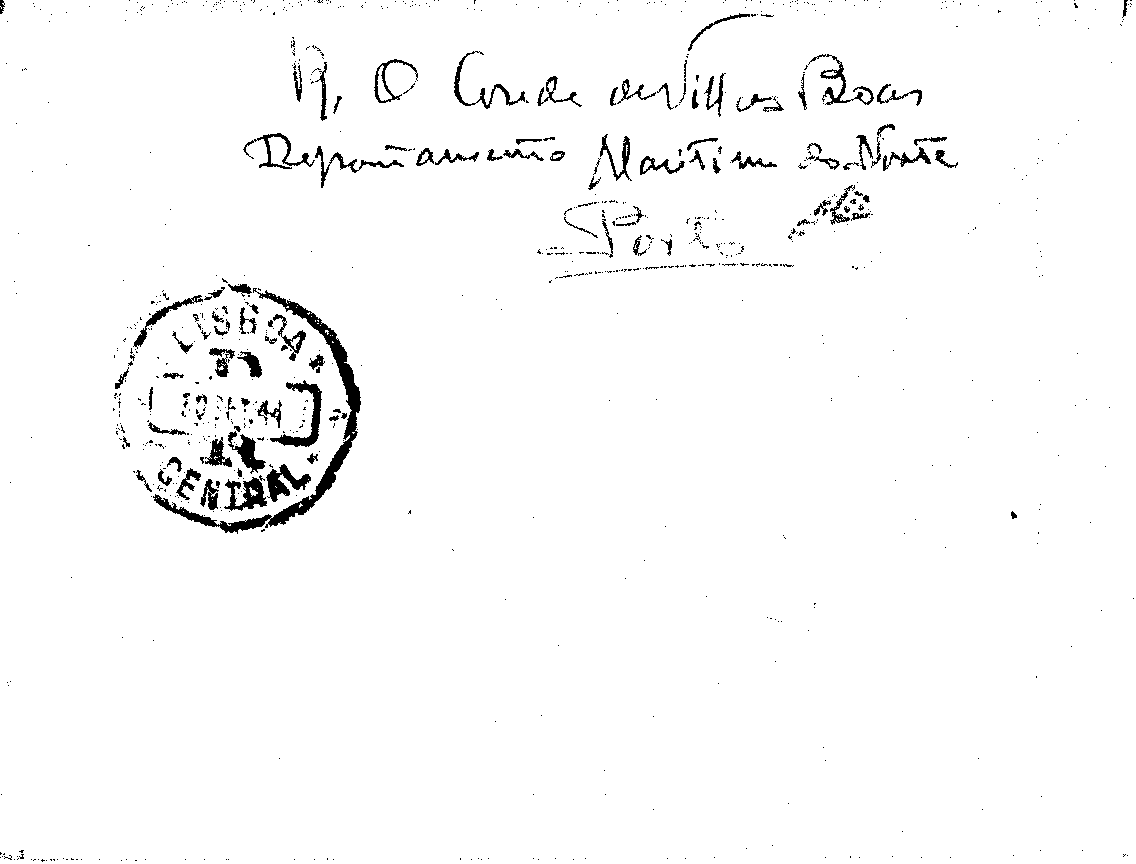 R. O Conde de Villas Boas
Departamento Maritimo do Norte
Porto
LISBOA
R
CENTRAL